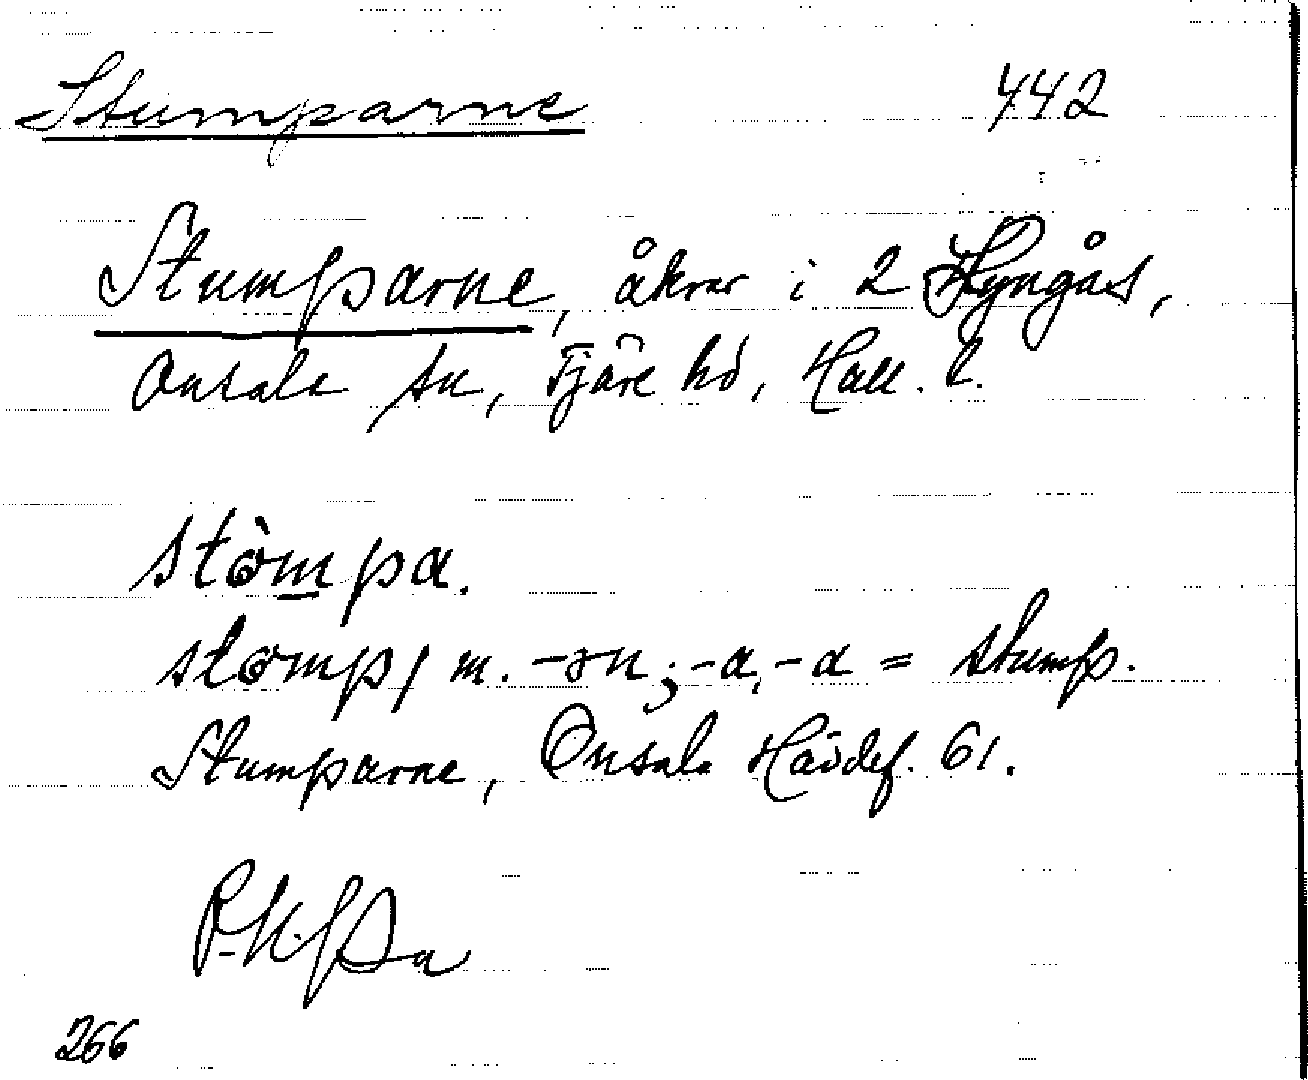 Stumparne 442
Stumparne, åkrar i 2 Hyngås,
Onsala sn, Fjäre hd, Hall. l.
stòmpa.
stomp, m. -ən; -a, -a = stump.
Stumparne, Onsala Hävdef. 61.
266